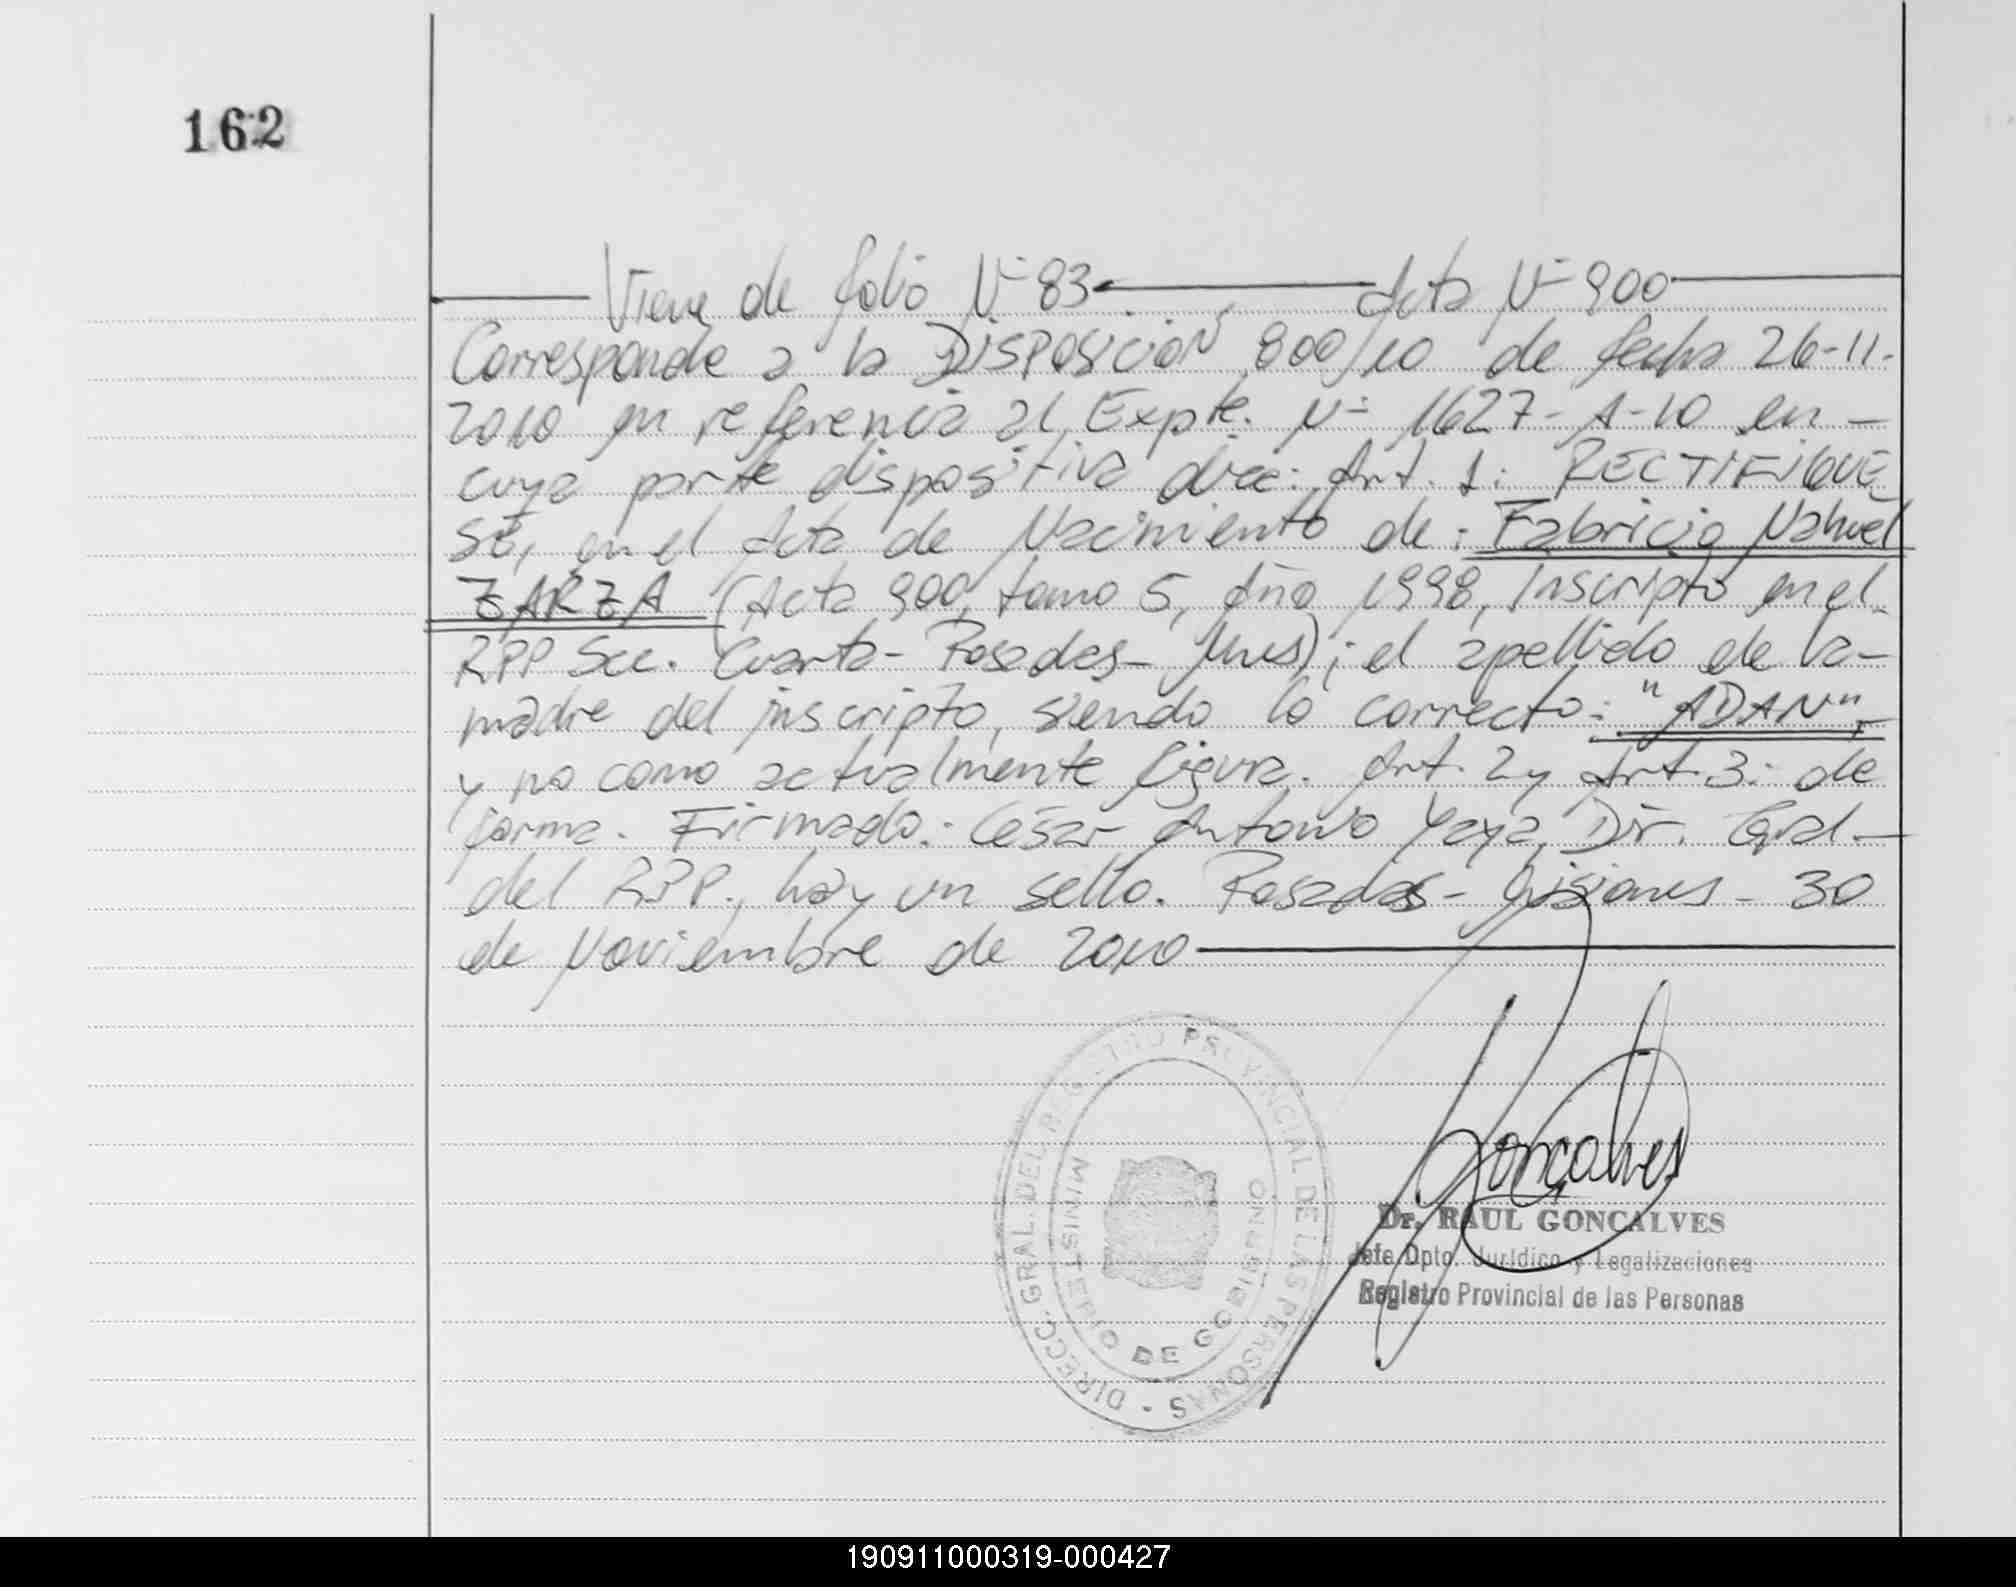 162
Viene de folio Nº 83 — Acta Nº 900
Corresponde a la DISPOSICION 800/10 de fecha 26-11-
2010 en referencia al Expte. Nº 1627-A-10 en -
cuya parte dispositiva dice: Art. 1: RECTIFIQUE
SE, en el Acta de Nacimiento de: Fabricio Nahuel
ZARZA (Acta 900, tomo 5, Año 1998, Inscripto en el
RPP Sec. Cuarta - Posadas - Mnes); el apellido de la -
madre del inscripto, siendo lo correcto: "ADAN",
y no como actualmente figura. Art. 2 y Art. 3: de
forma. Firmado: César Antonio Yaya, Dir. Gral. -
del RPP., hay un sello. Posadas - Misiones - 30
de Noviembre de 2010
DIRECC. GRAL. DEL REGISTRO PROVINCIAL DE LAS PERSONAS -
MINISTERIO DE GOBIERNO
Goncalves
Dr. RAUL GONCALVES
Jefe Dpto. Jurídico y Legalizaciones
Registro Provincial de las Personas
190911000319-000427